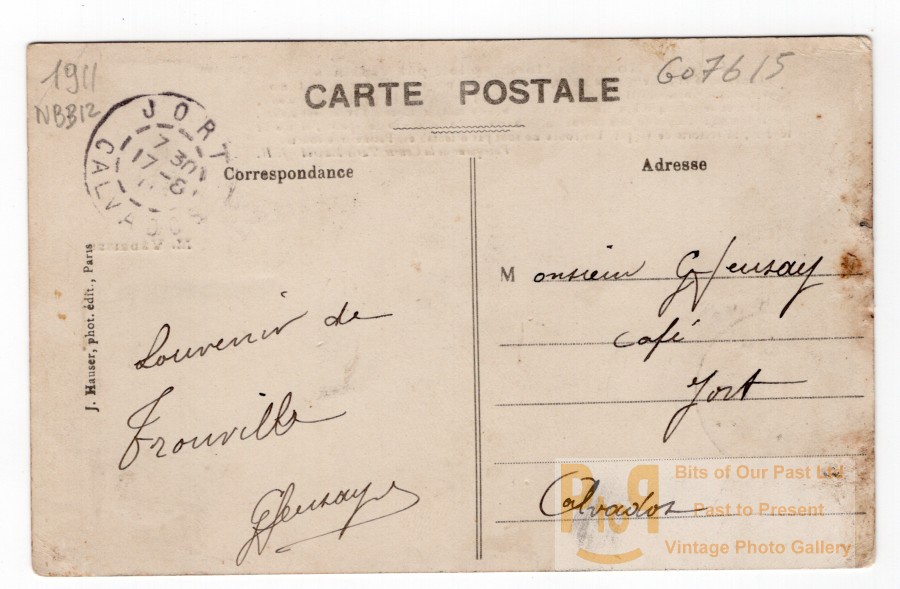 1911
NBB12
607615
CARTE POSTALE
JORT
7 30
17-8
CALVADOS
Correspondance
Adresse
J. Hauser, phot. édit., Paris
Monsieur
Café
Jort
Calvados
Souvenir de
Trouville
PtoP
Bits of Our Past Ltd
Past to Present
Vintage Photo Gallery